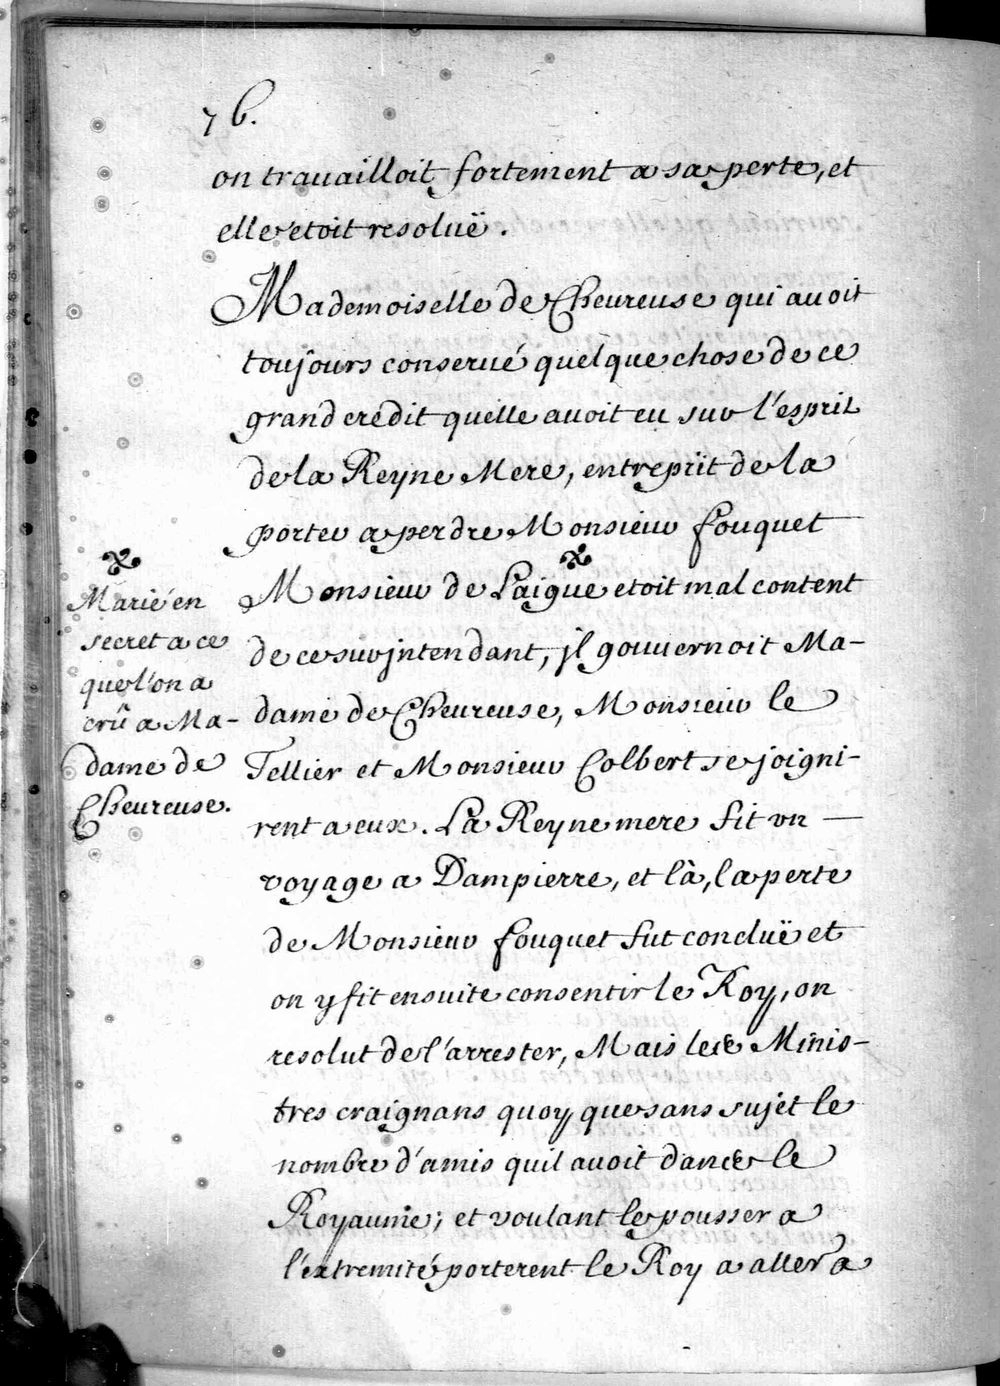 76.
on travailloit fortement a sa perte, et
elle etoit resoluë.
Mademoiselle de Cheureuse qui auoit
toujours conserué quelque chose de ce
grand credit quelle auoit eu sur l'esprit
de la Reyne Mere, entreprit de la
porter a perdre Monsieur fouquet
Monsieur de Laigue etoit mal content
de ce surjntendant, jl gouuernoit Ma-
dame de Cheureuse, Monsieur le
Tellier et Monsieur Colbert se joigni-
rent a eux. La Reyne mere fit vn
voyage a Dampierre, et là, la perte
de Monsieur fouquet fut concluë et
on y fit ensuite consentir le Roy, on
resolut de l'arrester, Mais les Minis-
tres craignans quoy que sans sujet le
nombre d'amis quil auoit dans le
Royaume; et voulant le pousser a
l'extremité porterent le Roy a aller a
Marié en
secret a ce
que l'on a
crû a Ma-
dame de
Cheureuse.